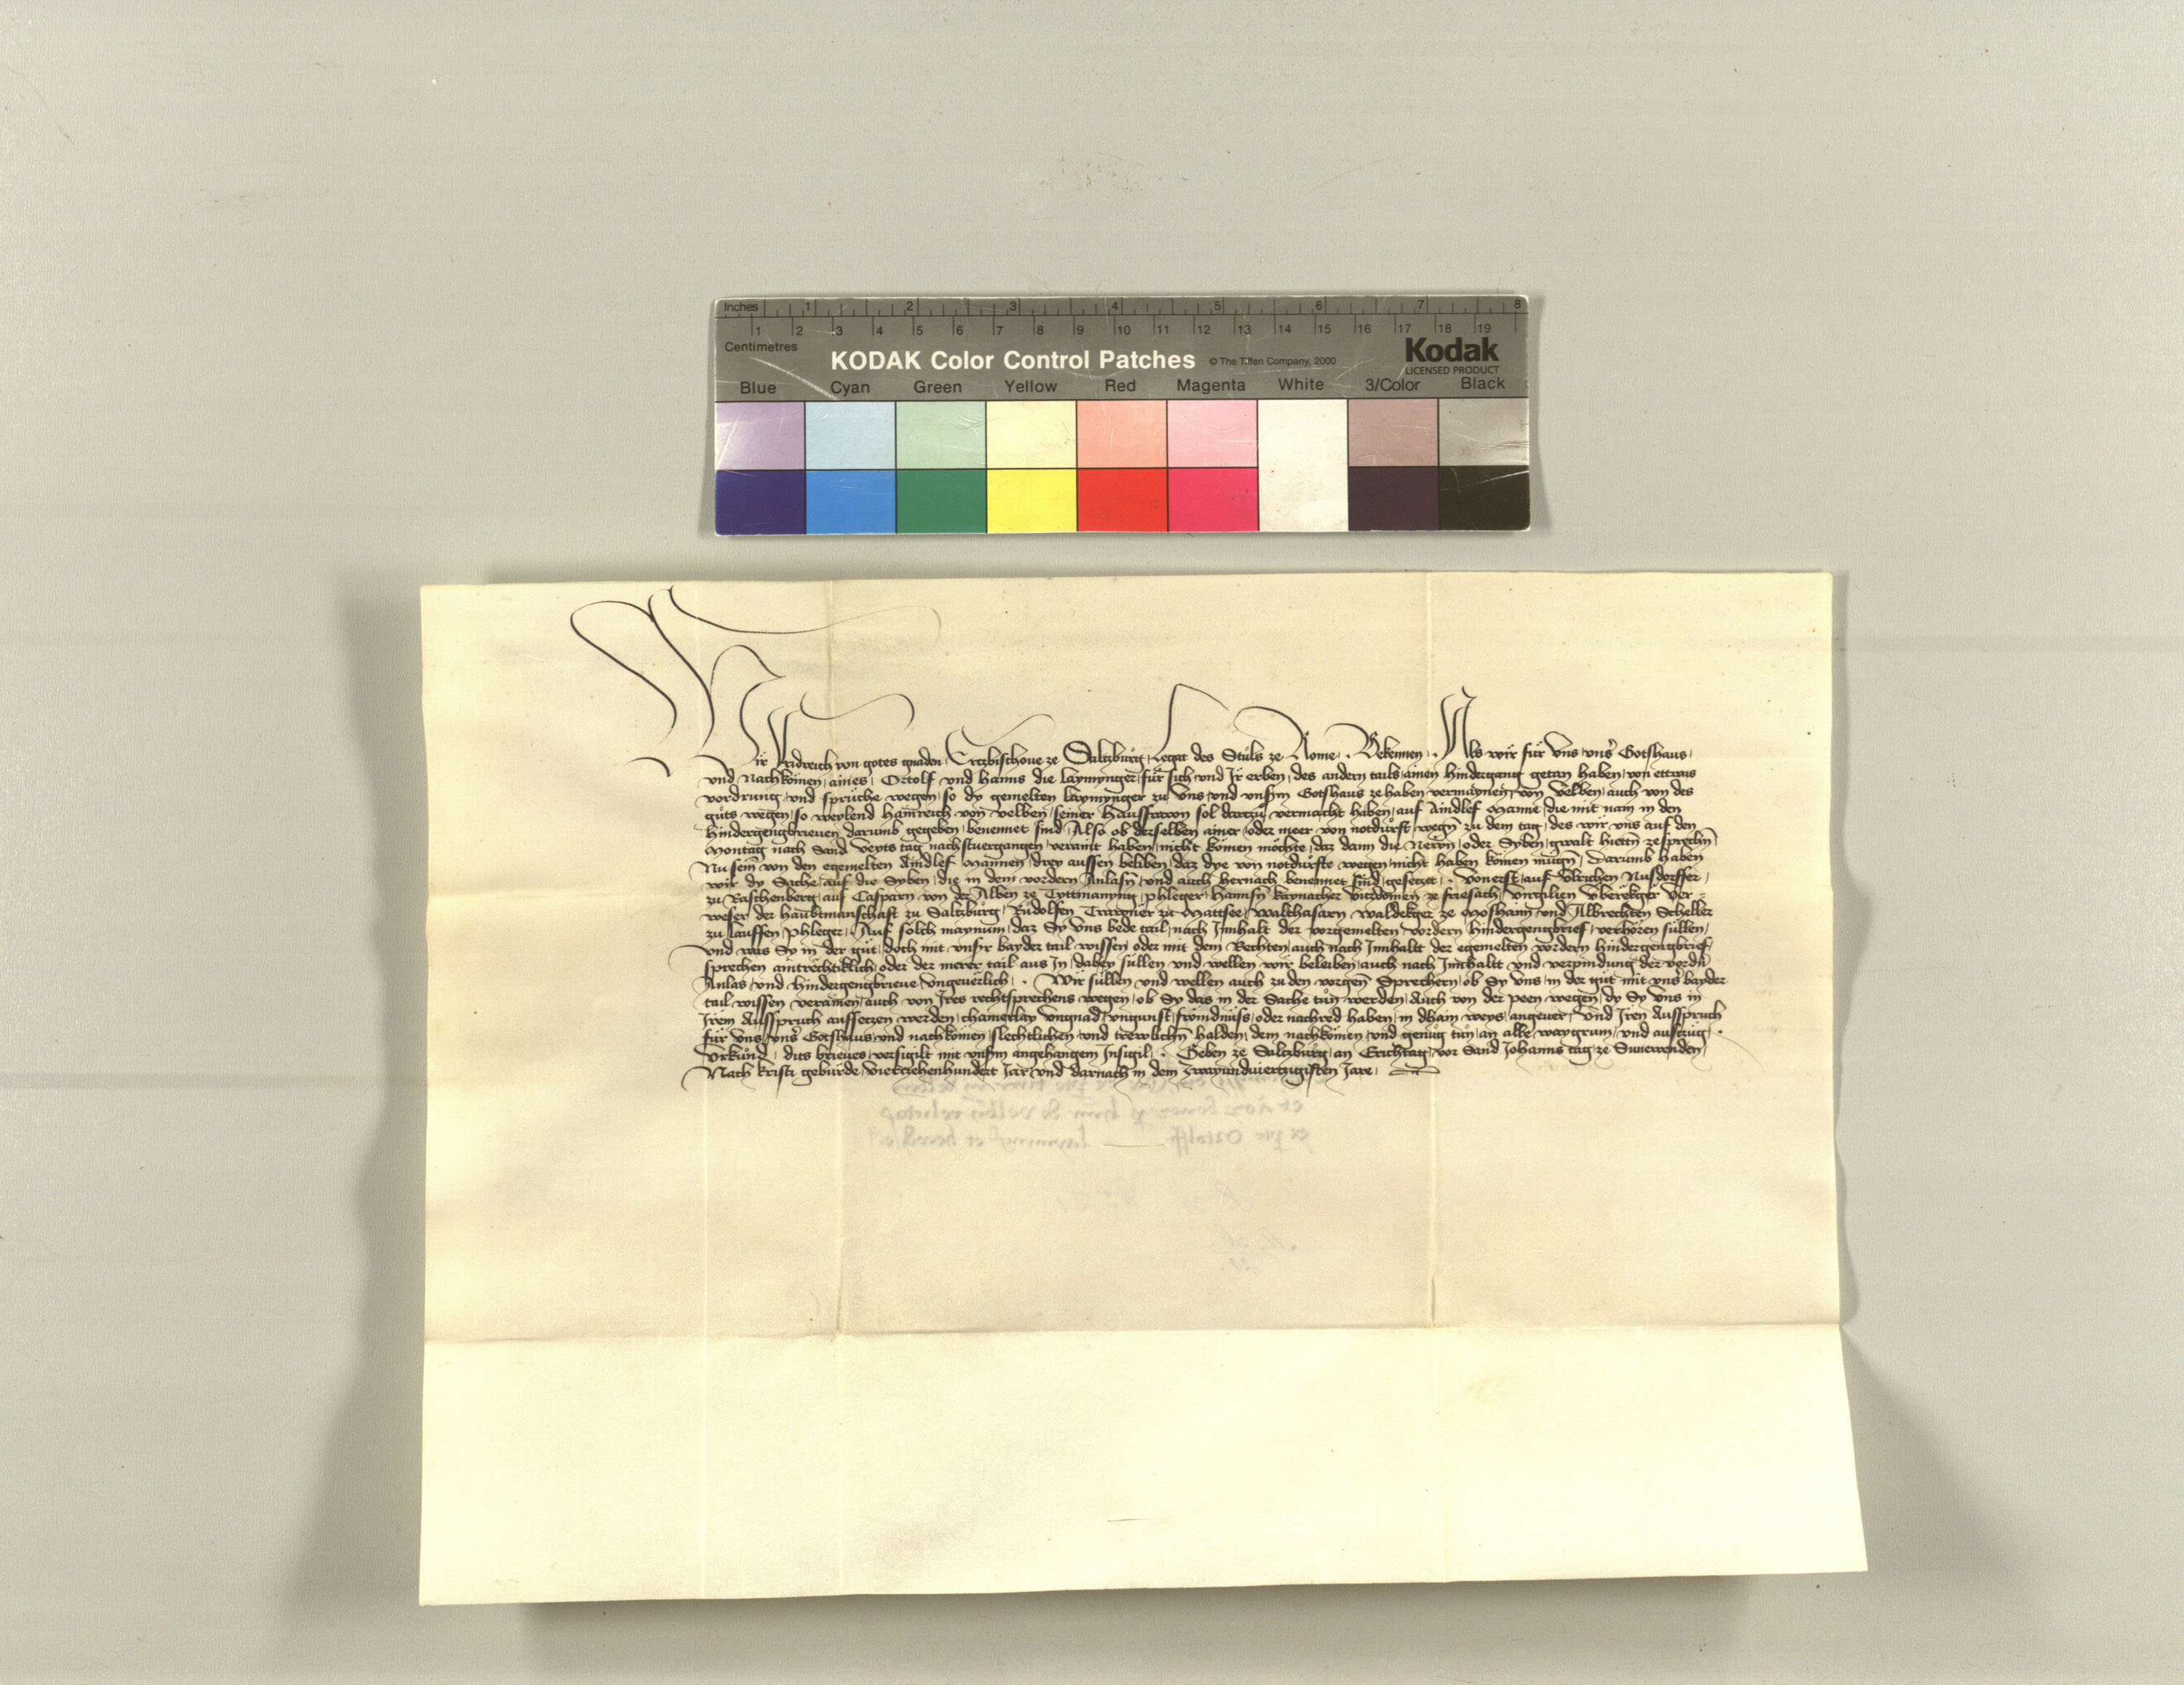 Inches 1 2 3 4 5 6 7 8
1 2 3 4 5 6 7 8 9 10 11 12 13 14 15 16 17 18 19
Centimetres
KODAK Color Control Patches © The Tiffen Company, 2000 Kodak
LICENSED PRODUCT
Blue Cyan Green Yellow Red Magenta White 3/Color Black
Wir Fridreich von gotes gnaden Ertzbischoue ze Saltzburg Legat des Stuls ze Rome. Bekennen. Als wir für Vns vnser Gotshaus
vnd Nachkomen aines, Ortolf vnd Hanns die Laymynger für sich vnd Ir erben, des andern tails ainen hindergang getan haben, von ettwas
vordrung vnd sprüche wegen, so dy gemelten Laymynger zu Vns vnd vnserm Gotshaus ze haben vermaynen von Velben, auch von des
guts wegen, so weylend Hainreich von Velben seiner Hausfrawn sol dartzu vermacht haben, auf Aindlef Manne, die mit nam in den
Hindergengbrieuen darumb gegeben benennet sind, Also ob derselben ainer oder meer von notdurft wegn zu dem tag, des wir vns auf den
Montag nach Sand Veyts tag nachstuergangen veraint haben, nicht komen möchte, daz dann die Newn oder Syben gwalt hietn zesprechn
Nu sein von den egemelten Aindlef Mannen drey aussen beliben, daz dye von notdurfte wegen nicht haben komen mugn, Darumb haben
wir dy Sache auf die Syben, die in dem vordern Anlasn vnd auch hernach benennet sind gesetzet. Vonerst auf Vlrichen Nusdorffer
zu Raschenberg, auf Casparn von der Alben ze Tyttmanyng phleger, Hannsn kaynacher Vitzdomen ze friesach, Virgilien Vberekger Ver=
weser der haubtmanschaft zu Saltzburg, Rudolfen Trawner zu Mattsee, Walthasarn Waldekger ze Moshaim vnd Albrechten Scheller
zu Lauffen phleger, Auf solch maynum, daz Sy Vns bede tail, nach Innhalt der vorgemelten vordern hindergengbrief verhören süllen,
vnd was Sy in der gut, doch mit vnser bayder tail wissen oder mit dem Rechten, auch nach Innhaltt der egemelten vordern hindergengbrief
sprechen aintrechtiklich oder der merer tail aus In, dabey süllen vnd wellen wir beleiben, auch nach Innhaltt vnd verpindung der vordn
Anlas vnd hindergengbrieue Vngeuerlich. Wir süllen vnd wellen auch zu den vorgen Sprechern, ob Sy Vns in der gut mit vnser bayder
tail wissen verainen, auch von Ires rechtsprechens wegen, ob Sy das in der Sache tun werden, Auch von der peen wegen, dy Sy Vns in
Irem Ausspruch aufsetzen werden, chainerlay vngnad vngunst, frömdnüss, oder nachred haben, in dhain weys, angeuer, Vnd Iren Ausspruch
für Vns, vnser Gotshaus vnd nachkomen, slechtlichen vnd trewlichn halden, dem nachkomen, vnd genug tun, an alle waygrum, vnd auszüg.
Vrkund, ditz brieues, versigilt mit vnserm anhangundem Insigil. Geben ze Saltzburg, an Erichtag, vor Sand Johanns tag, ze Sunewenden,
Nach kristi geburde, vierzehenhundert Jar, vnd darnach in dem zwayundviertzigisten Jare.